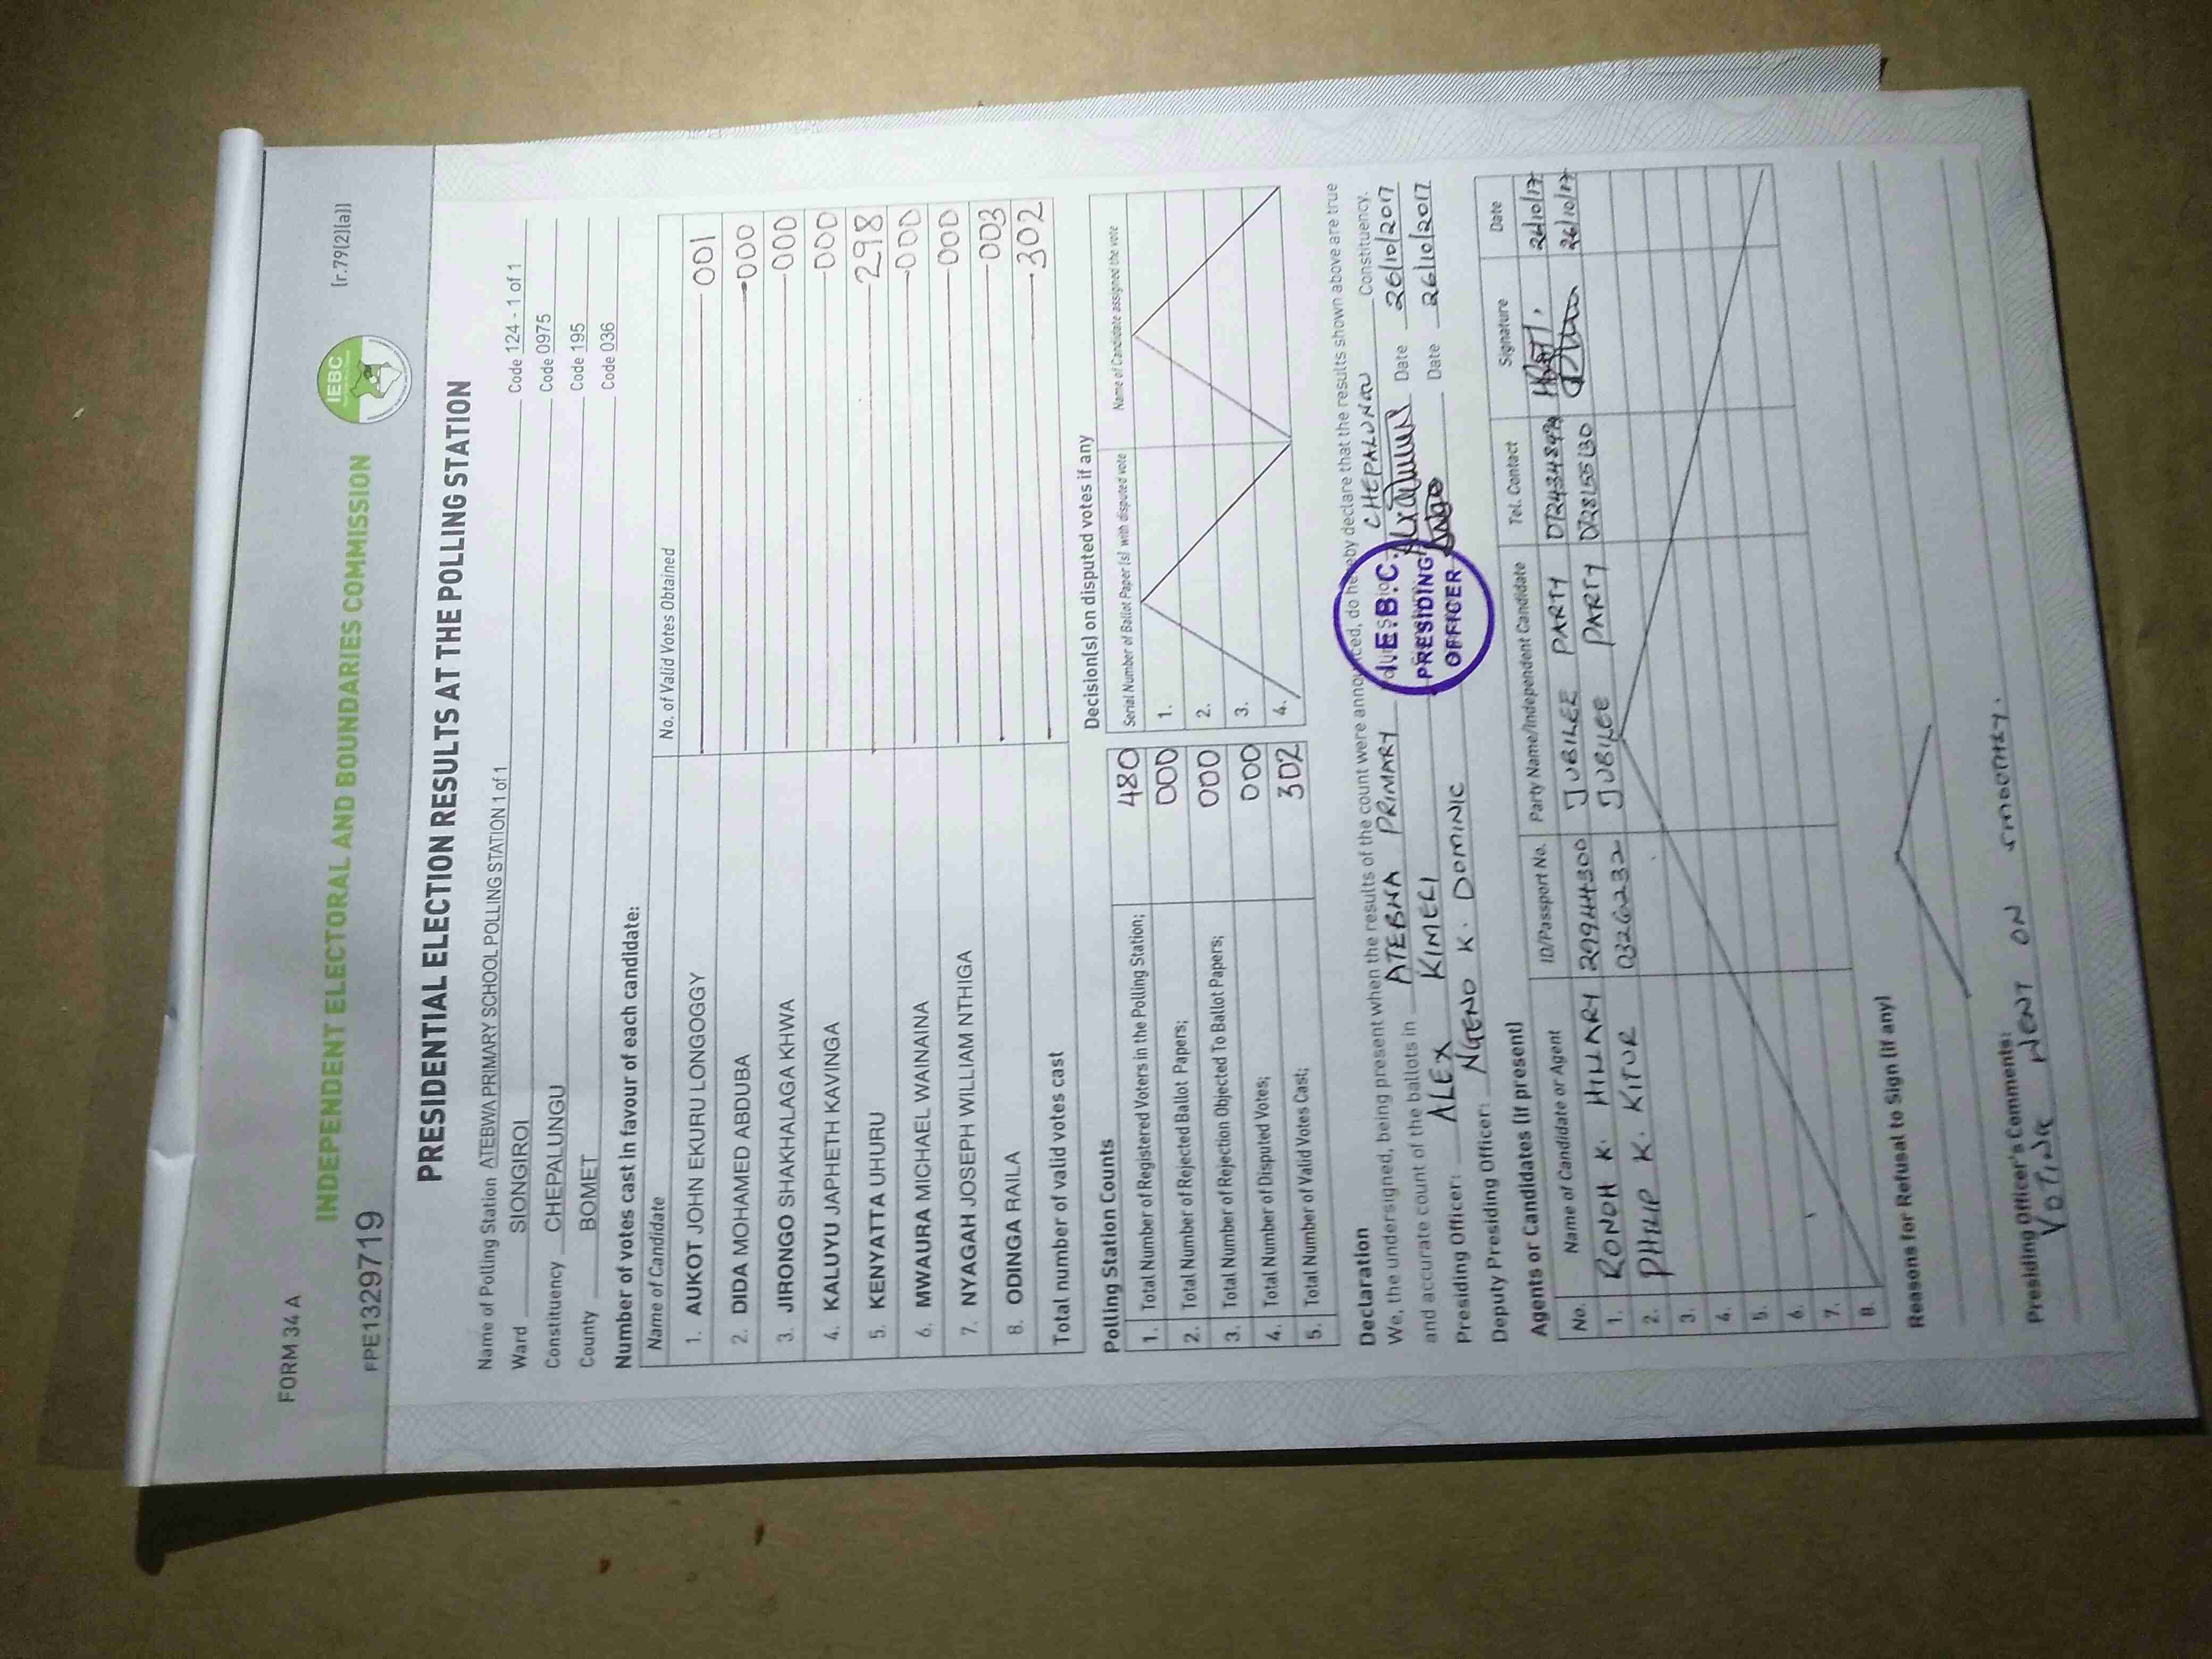 FORM 34 A
[r.79(2)(a)]
IEBC
INDEPENDENT ELECTORAL AND BOUNDARIES COMMISSION
FPE1329719
PRESIDENTIAL ELECTION RESULTS AT THE POLLING STATION
Name of Polling Station ATEBWA PRIMARY SCHOOL POLLING STATION 1 of 1 Code 124 - 1 of 1
Ward SIONGIROI Code 0975
Constituency CHEPALUNGU Code 195
County BOMET Code 036
Number of votes cast in favour of each candidate:
Name of Candidate No. of Valid Votes Obtained
1. AUKOT JOHN EKURU LONGOGGY 001
2. DIDA MOHAMED ABDUBA 000
3. JIRONGO SHAKHALAGA KHWA 000
4. KALUYU JAPHETH KAVINGA 000
5. KENYATTA UHURU 298
6. MWAURA MICHAEL WAINAINA 000
7. NYAGAH JOSEPH WILLIAM NTHIGA 000
8. ODINGA RAILA 003
Total number of valid votes cast 302
Polling Station Counts
1. Total Number of Registered Voters in the Polling Station; 480
2. Total Number of Rejected Ballot Papers; 000
3. Total Number of Rejection Objected To Ballot Papers; 000
4. Total Number of Disputed Votes; 000
5. Total Number of Valid Votes Cast; 302
Decision(s) on disputed votes if any
Serial Number of Ballot Paper(s) with disputed vote Name of Candidate assigned the vote
1.
2.
3.
4.
Declaration
We, the undersigned, being present when the results of the count were announced, do hereby declare that the results shown above are true
and accurate count of the ballots in ATEBWA PRIMARY CHEPALUNGU Constituency.
Presiding Officer: ALEX KIMELI Date 26/10/2017
Deputy Presiding Officer: NGENO K. DOMINIC Date 26/10/2017
I.E.B.C.
PRESIDING
OFFICER
Agents or Candidates (if present)
No. Name of Candidate or Agent ID/Passport No. Party Name/Independent Candidate Tel. Contact Signature Date
1. RONOH K. HILLARY JUBILEE PARTY 26/10/17
2. PHILIP K. KITUR 03262232 JUBILEE PARTY 0728155130 26/10/17
3.
4.
5.
6.
7.
8.
Reasons for Refusal to Sign (if any)
Presiding Officer's Comments:
VOTING WENT ON SMOOTHLY.